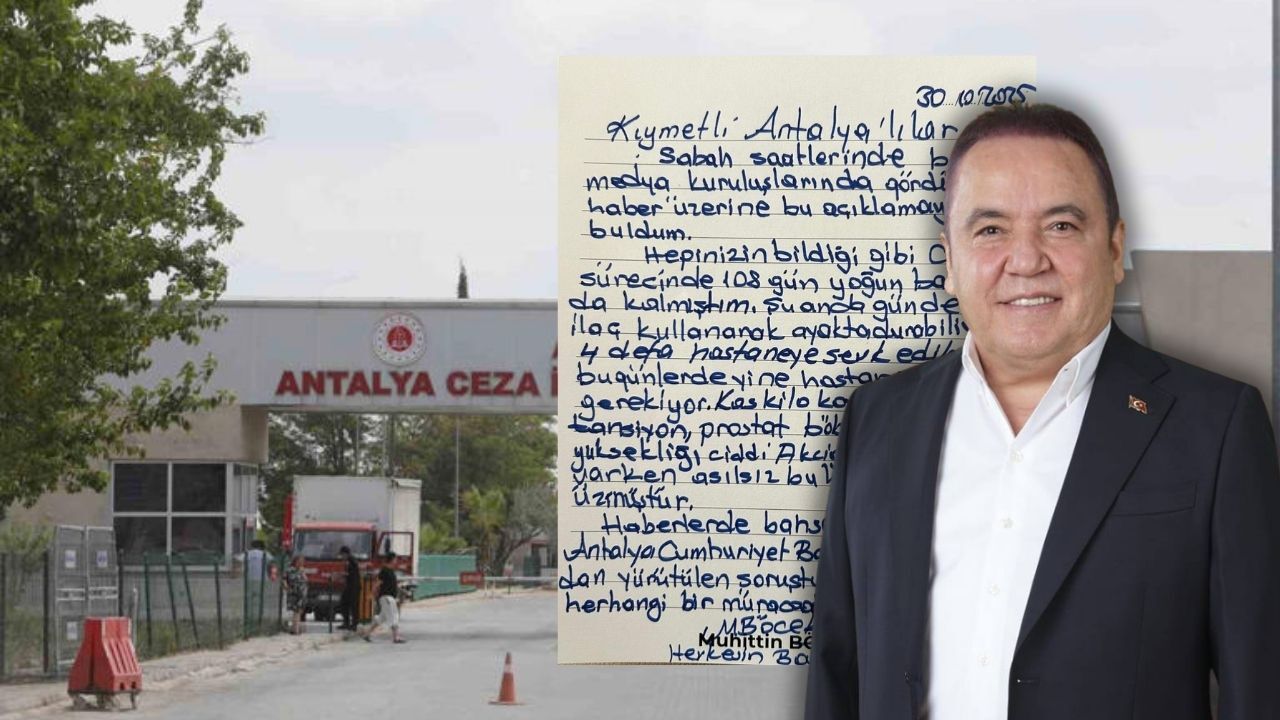 ANTALYA CEZA İ
30.10.2025
Kıymetli Antalya'lılar
Sabah saatlerinde b
medya kuruluşlarında gördü
haber üzerine bu açıklamay
buldum.
Hepinizin bildiği gibi C
sürecinde 108 gün yoğun ba
da kalmıştım. Şu anda günde
ilaç kullanarak ayakta durabili
4 defa hastaneye sevk edil
bugünlerde yine hasta
gerekiyor. Kas kilo ka
tansiyon, prostat böb
yüksekliği, ciddi Akci
varken asılsız bu
üzmüştür.
Haberlerde bahs
Antalya Cumhuriyet Ba
dan yürütülen soruştu
herhangi bir müracaa
M.BÖCE
Muhittin Bö
Herkesin Ba